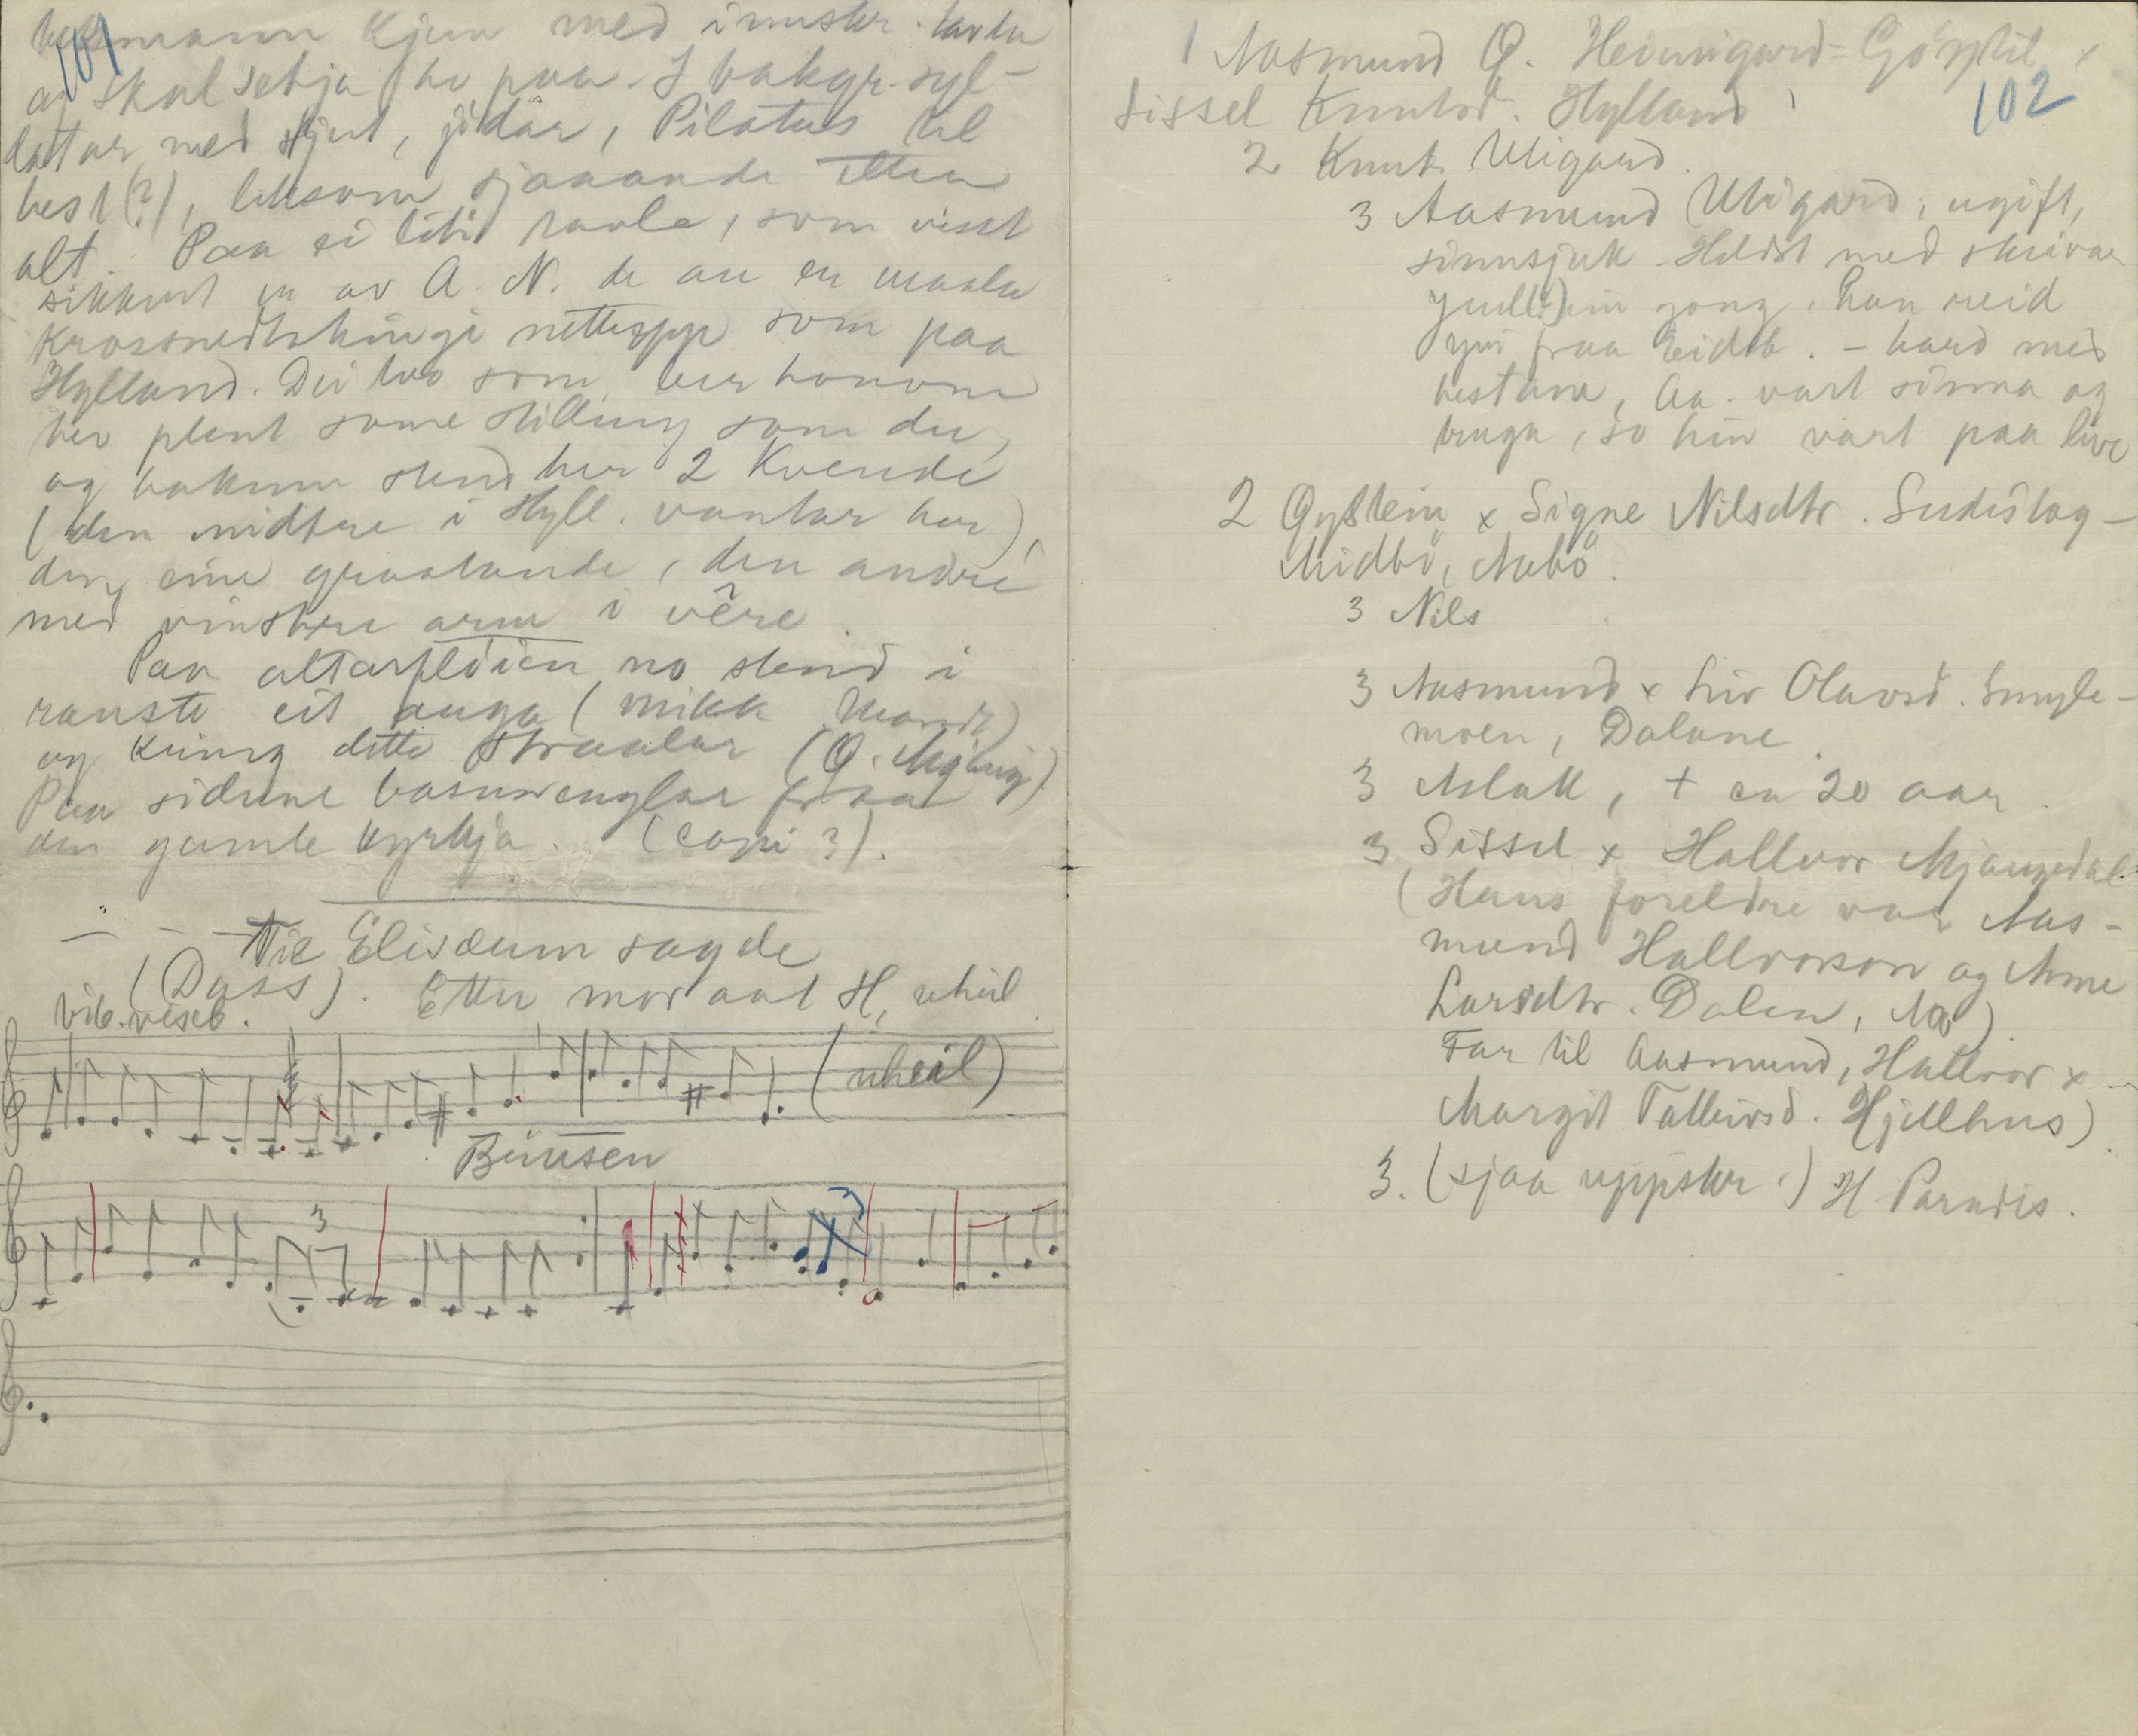 101
mann kjem med innskr. tavla
og skal setja ho paa. I bakgr. syl-
datar med spjut, jödar, Pilatus til
hest (?), liksom sjaaande etter
alt. Paa ei liti tavle, som visst
sikkert er av A. N. de au er maala
Krossnedtakingi nettupp som paa
Hylland. Dei two som ber honom
her plent same stilling som der,
og bakum stend her 2 Kvende
(den midtre i Hyll. vantar her),
den eine graatande, den andre
med vinstre arm i vêre.
Paa altarflöien no stend i
rauste eit auga (Mikk Mandt)
og kring dette straalar (O. )
Paa sidune basunenglar fraa
den gamle kyrkja. (copi ?).
Til Elisæum sagde
(Dass). Etter mor aat H,
vib. viseb.
Buusen
3
102
1 Aasmund O. Heimigard - Göystil x
Sissel Knutsd. Hylland
2 Knut Utigard.
3 Aasmund Utigard, ugift,
sinnsjuk. Heldst med skriva
ein gong, han reid
yvi fraa Eidsb. - hard med
hestane, Aa. vart sinna og
truga, so hin vart paa live
2 Øystein x Signe Nilsdtr. Sudistog -
Midbö, Aabö.
3 Nils
3 Aasmund x Liv Olavsd. Smyle -
moen, Dalane.
3 Aslak, + ca 20 aar.
3 Sissel x Hallvor Mjaugedal
(Hans foreldre var Aas -
mund Hallvorson og Anne
Larsdtr. Dalen, Aa)
Far til Aasmund, Hallvor x
Margit Talleivsd. Hjellhus)
3. (sjaa uppskr.) H Paradis.